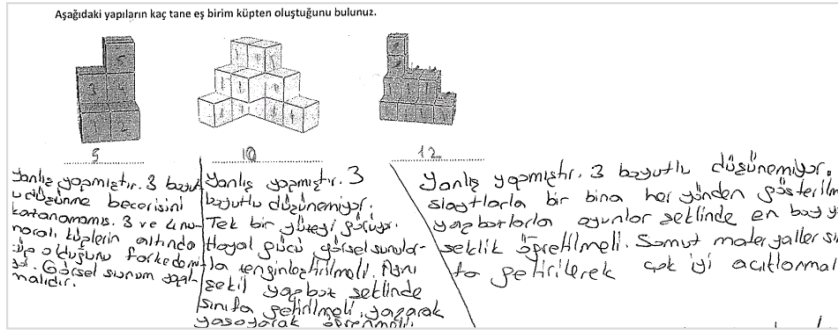 Aşağıdaki yapıların kaç tane eş birim küpten oluştuğunu bulunuz.
5
3 4
1 2
5 10 12
Yanlış yapmıştır. 3 boyut
düşünme becerisini
katanamamış. 3 ve 4 nu-
maralı küplerin altında
küp olduğunu farkedem
Görsel sunum yapıl-
malıdır.
Yanlış yapmıştır. 3
boyutlu düşünemiyor.
Tek bir yüzeyi görüyor.
Hayal gücü görsel sunular-
la zenginleştirilmeli. Aynı
şekil yapboz şeklinde
sınıfa getirilmeli, yazarak
yaşayarak öğrenmeli.
Yanlış yapmıştır. 3 boyutlu düşünemiyor.
slaytlarla bir bina her yönden gösterilm
yapbozlarla oyunlar şeklinde en boy y
seklik öğretilmeli. Somut materyaller sı
fa getirilerek çok iyi açıklanmal